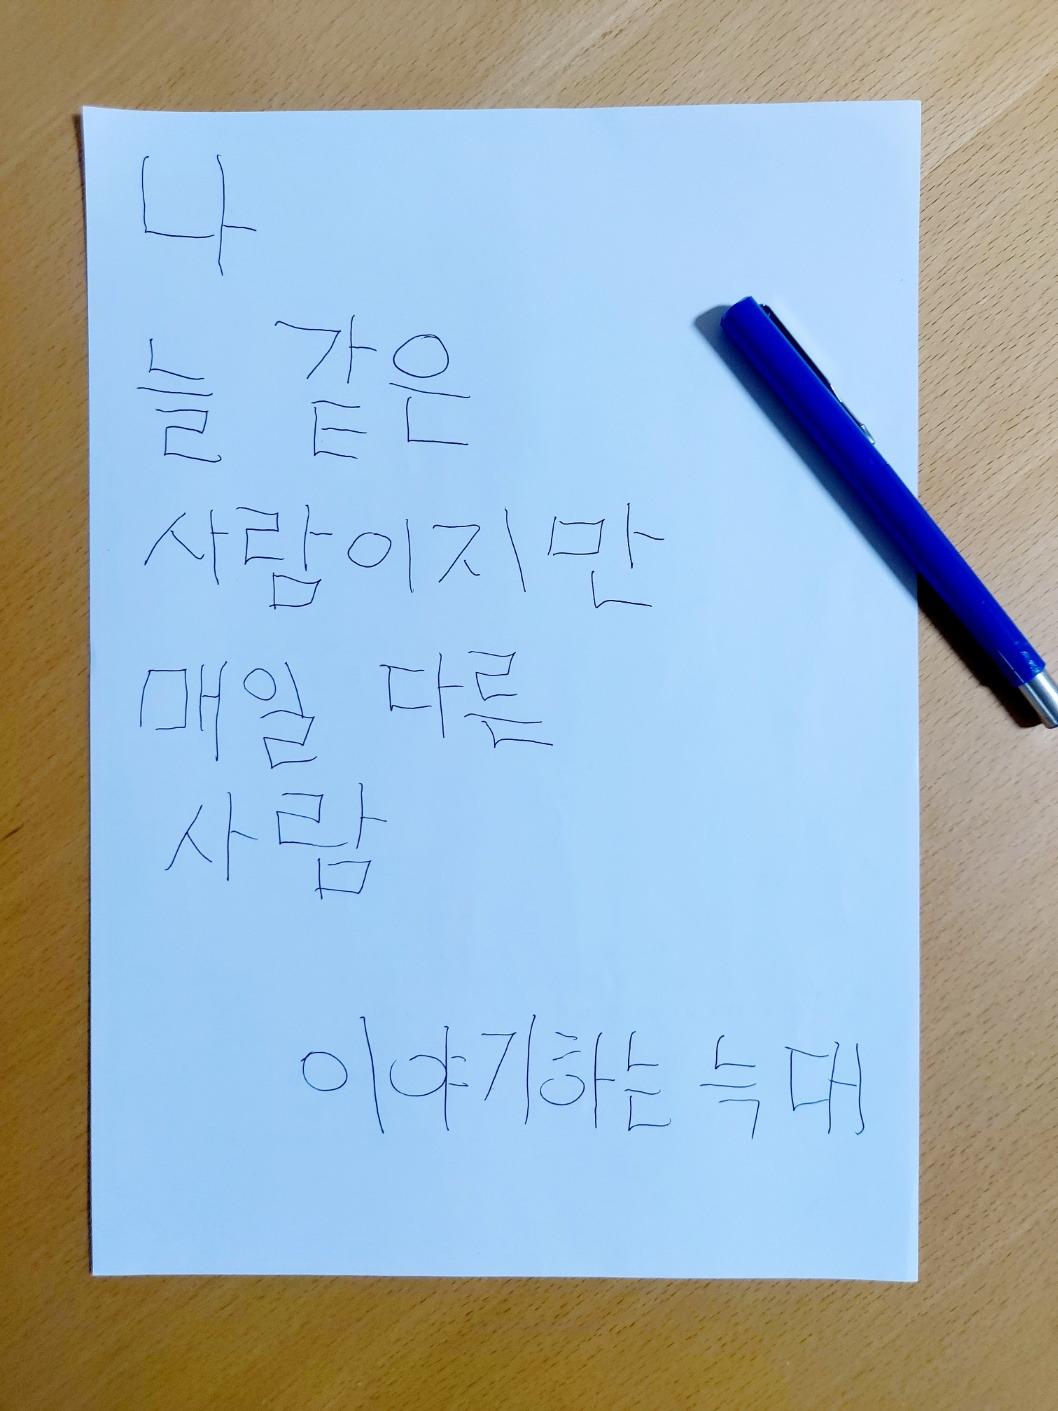 나
늘 같은
사람이지만
매일 다른
사람
이야기하는 늑대